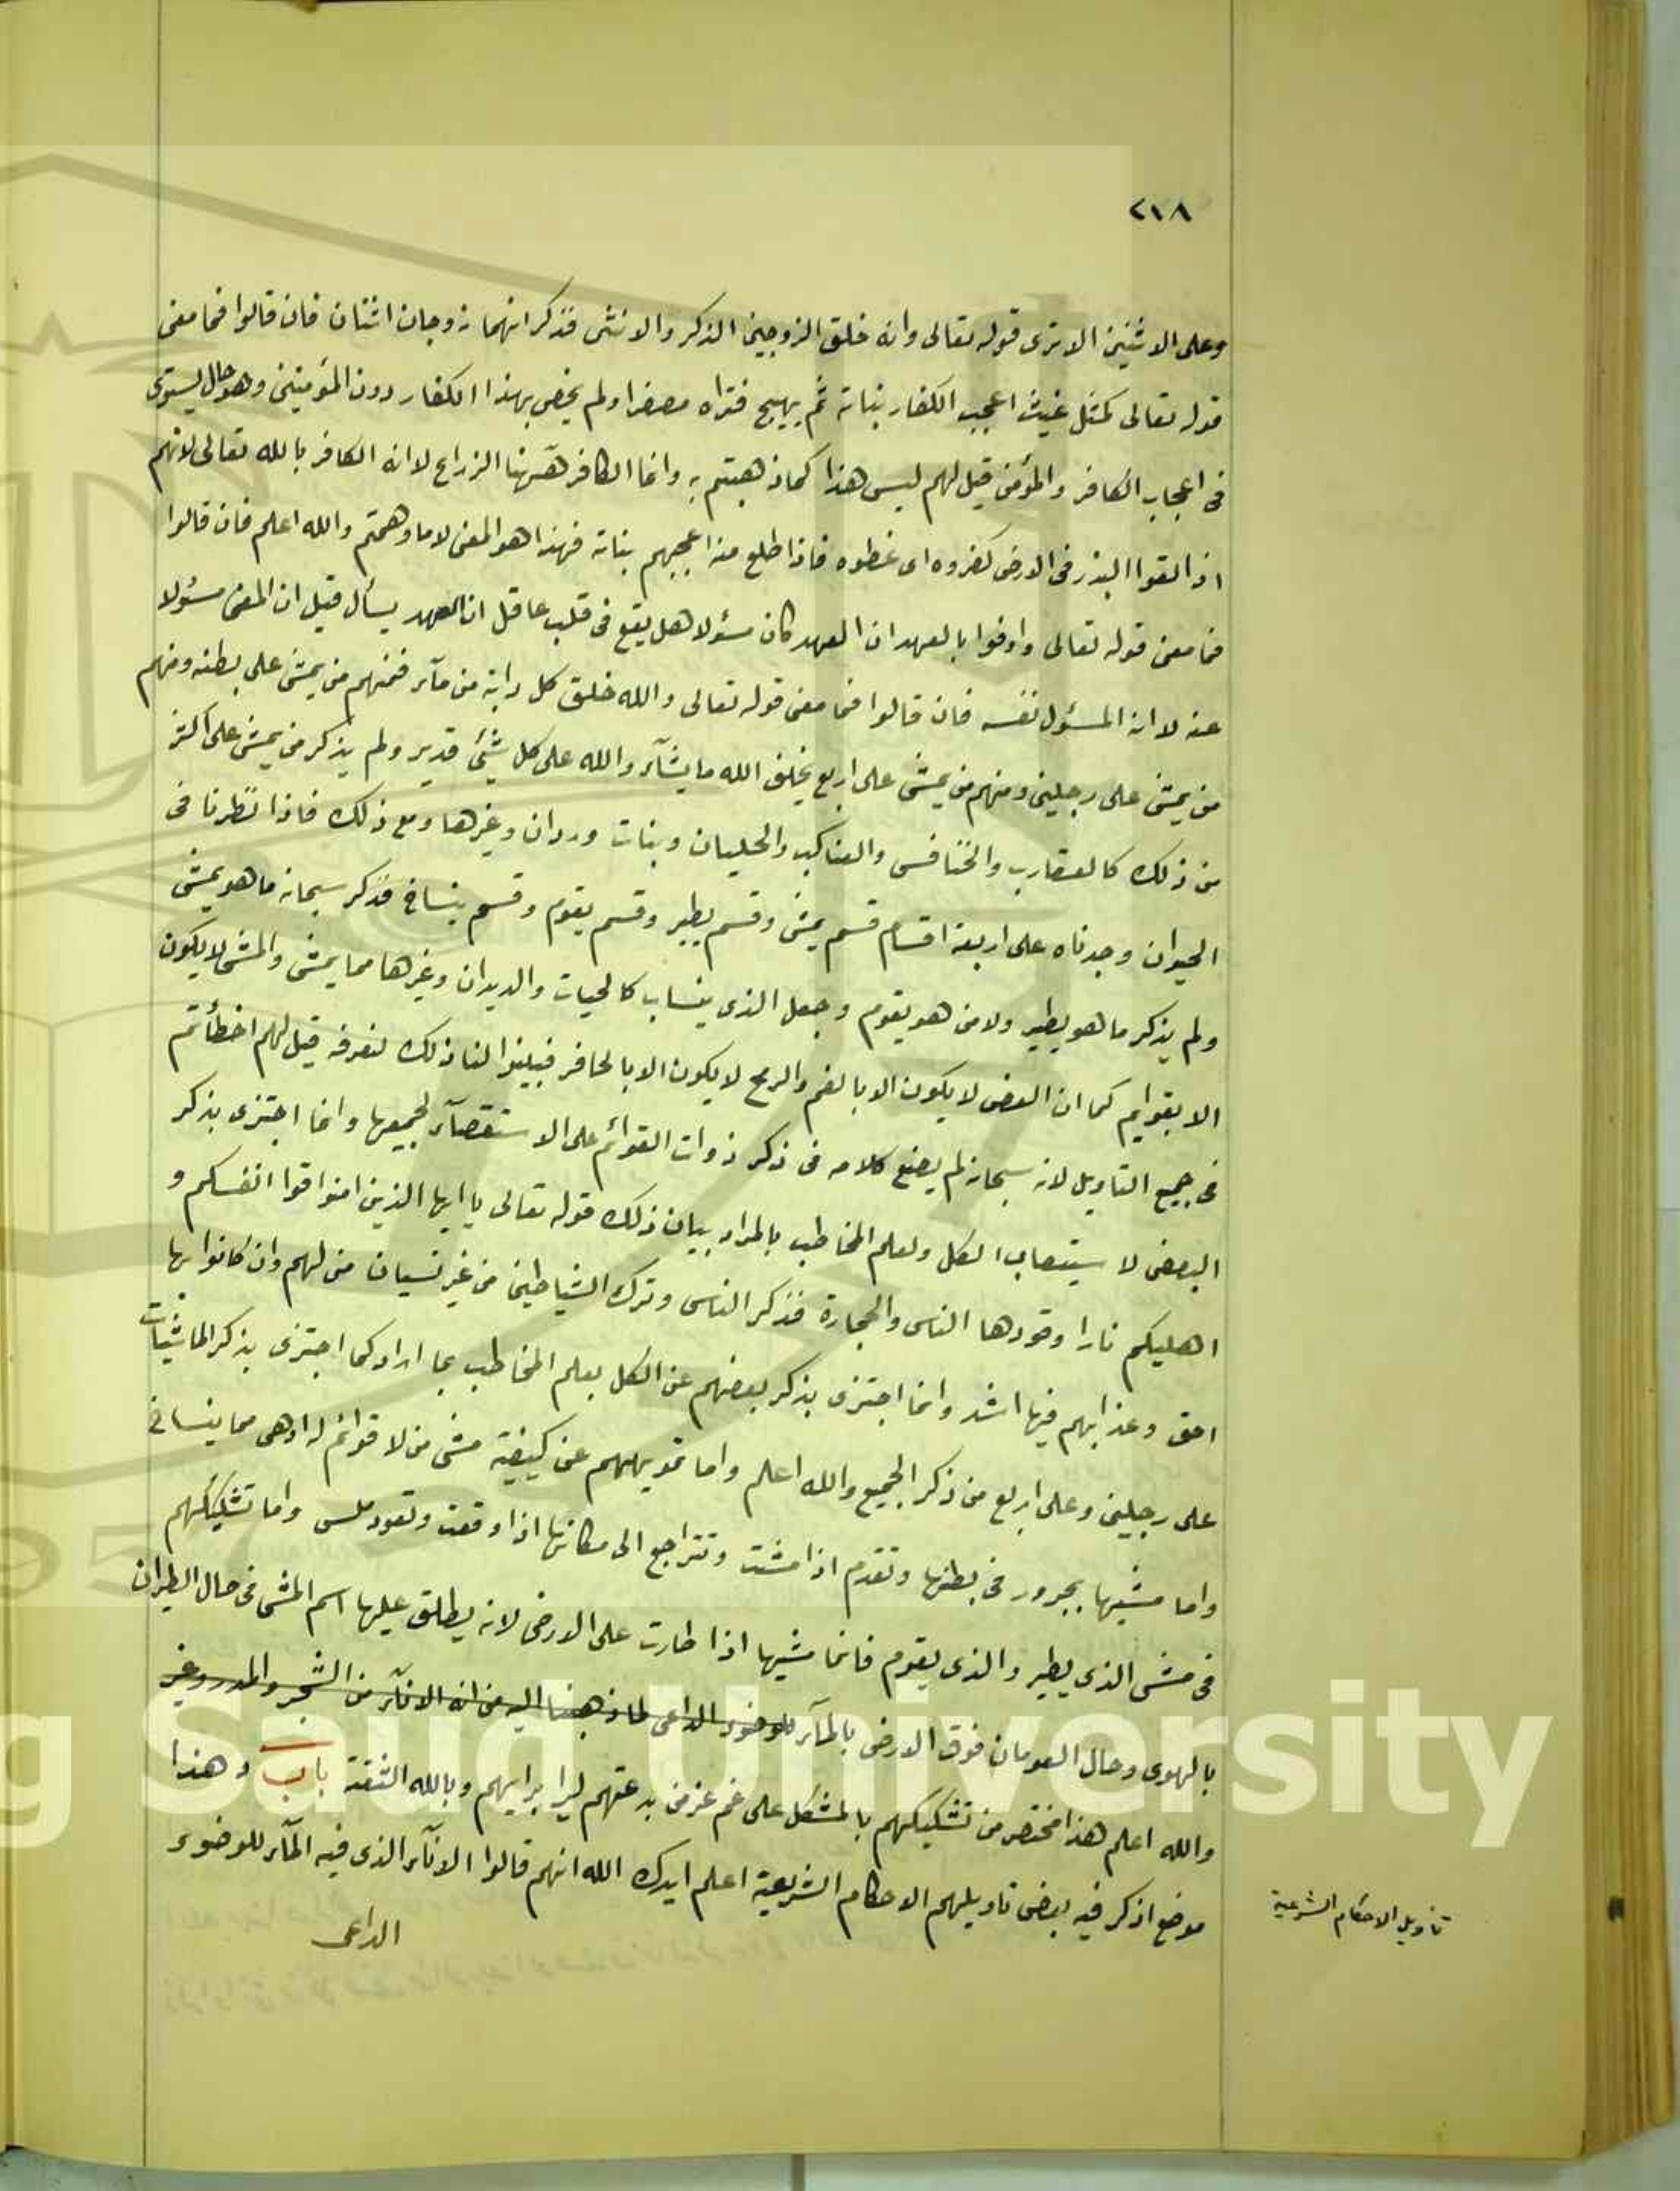 ٢١٨
وعلى الاثنين الا ترى قوله تعالى وانه خلق الزوجين الذكر والانثى فذكر انهما زوجان اثنان فان قالوا فما معنى
قوله تعالى كمثل غيث اعجب الكفار نباته ثم يهيج فتراه مصفرا ولم يخص بهذا الكفار دون المؤمنين وهو حال يستوى
فى اعجاب الكافر والمؤمن قيل لهم ليس هذا كما ذهبتم به وانما الكافر ههنا الزراع لا انه الكافر بالله تعالى لانهم
اذا القوا البذر فى الارض كفروه اى غطوه فاذا طلع منه اعجبهم نباته فهذا هو المعنى لا ما وهمتم والله اعلم فان قالوا
فما معنى قوله تعالى واوفوا بالعهد ان العهد كان مسئولا هل يقع فى قلب عاقل ان العهد يسأل قيل ان المعنى مسئولا
عنه لا انه المسئول نفسه فان قالوا فما معنى قوله تعالى والله خلق كل دابة من مآء فمنهم من يمشى على بطنه ومنهم
من يمشى على رجلين ومنهم من يمشى على اربع يخلق الله ما يشآء والله على كل شئ قدير ولم يذكر من يمشى على اكثر
من ذلك كالعقارب والخنافس والعناكب والحلبان وبنات وردان وغيرها ومع ذلك فاذا نظرنا فى
الحيوان وجدناه على اربعة اقسام قسم يمشى وقسم يطير وقسم يعوم وقسم ينساخ فذكر سبحانه ما هو يمشى
ولم يذكر ما هو يطير ولا من هو يعوم وجعل الذى ينساب كالحيات والديدان وغيرها مما يمشى والمشى لا يكون
الا بقوايم كما ان العض لا يكون الا بالفم والرمح لا يكون الا بالحافر فبينوا لنا ذلك لنعرفه قيل لهم اخطأتم
فى جميع التاويل لانه سبحانه لم يضع كلامه فى ذكر ذوات القوائم على الاستقصآء لجميعها وانما اجتزى بذكر
البعض لا ستيعاب الكل ولعلم المخاطب بالمراد بيان ذلك قوله تعالى يا ايها الذين امنوا قوا انفسكم و
اهليكم نارا وقودها الناس والحجارة فذكر الناس وترك الشياطين من غير نسيان من لهم وان كانوا بها
احق وعذابهم فيها اشد وانما اجتزى بذكر بعضهم عن الكل بعلم المخاطب بما اراد كما اجتزى بذكر الماشيات
على رجلين وعلى اربع من ذكر الجميع والله اعلم واما تمويههم عن كيفية مشى من لا قوائم له اوهى مما ينساخ
واما مشيها بجرور فى بطنها وتقدم اذا مشت وتتراجع الى مكانها اذا وقفت وتعود ملس واما تشكيكهم
فى مشى الذى يطير والذى يعوم فانما مشيها اذا طارت على الارض لانه يطلق عليها اسم المشى فى حال الطيران
بالهوى وحال العومان فوق الارض بالمآء للوضوء الداعى لما ذهبنا اليه من انه الانآء من الشجر والمدر وغير
والله اعلم هذا مختصر من تشكيكهم بالمشكل على غم غز من بدعتهم ليرا برايهم وبالله الثقة باب وهذا
موضع اذكر فيه بعض تاويلهم الاحكام الشريعية اعلم ايدك الله انهم قالوا الانآء الذى فيه المآء للوضوء
تأويل الاحكام الشرعية
الداعى
King Saud University
1957